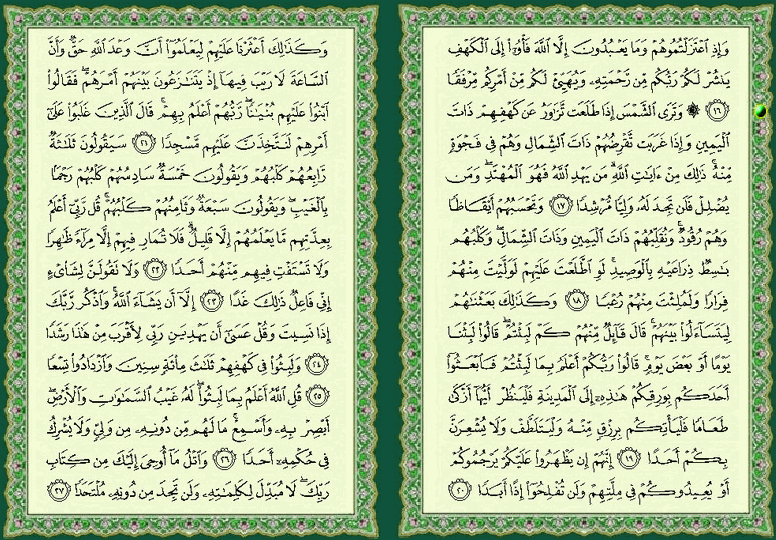 وَإِذِ ٱعْتَزَلْتُمُوهُمْ وَمَا يَعْبُدُونَ إِلَّا ٱللَّهَ فَأْوُۥٓا۟ إِلَى ٱلْكَهْفِ
يَنشُرْ لَكُمْ رَبُّكُم مِّن رَّحْمَتِهِۦ وَيُهَيِّئْ لَكُم مِّنْ أَمْرِكُم مِّرْفَقًا
﴿١٦﴾ ۞ وَتَرَى ٱلشَّمْسَ إِذَا طَلَعَت تَّزَٰوَرُ عَن كَهْفِهِمْ ذَاتَ
ٱلْيَمِينِ وَإِذَا غَرَبَت تَّقْرِضُهُمْ ذَاتَ ٱلشِّمَالِ وَهُمْ فِى فَجْوَةٍ
مِّنْهُ ۚ ذَٰلِكَ مِنْ ءَايَٰتِ ٱللَّهِ ۗ مَن يَهْدِ ٱللَّهُ فَهُوَ ٱلْمُهْتَدِ ۖ وَمَن
يُضْلِلْ فَلَن تَجِدَ لَهُۥ وَلِيًّا مُّرْشِدًا ﴿١٧﴾ وَتَحْسَبُهُمْ أَيْقَاظًا
وَهُمْ رُقُودٌ ۚ وَنُقَلِّبُهُمْ ذَاتَ ٱلْيَمِينِ وَذَاتَ ٱلشِّمَالِ ۖ وَكَلْبُهُم
بَٰسِطٌ ذِرَاعَيْهِ بِٱلْوَصِيدِ ۚ لَوِ ٱطَّلَعْتَ عَلَيْهِمْ لَوَلَّيْتَ مِنْهُمْ
فِرَارًا وَلَمُلِئْتَ مِنْهُمْ رُعْبًا ﴿١٨﴾ وَكَذَٰلِكَ بَعَثْنَٰهُمْ
لِيَتَسَآءَلُوا۟ بَيْنَهُمْ ۚ قَالَ قَآئِلٌ مِّنْهُمْ كَمْ لَبِثْتُمْ ۖ قَالُوا۟ لَبِثْنَا
يَوْمًا أَوْ بَعْضَ يَوْمٍ ۚ قَالُوا۟ رَبُّكُمْ أَعْلَمُ بِمَا لَبِثْتُمْ فَٱبْعَثُوٓا۟
أَحَدَكُم بِوَرِقِكُمْ هَٰذِهِۦٓ إِلَى ٱلْمَدِينَةِ فَلْيَنظُرْ أَيُّهَآ أَزْكَىٰ
طَعَامًا فَلْيَأْتِكُم بِرِزْقٍ مِّنْهُ وَلْيَتَلَطَّفْ وَلَا يُشْعِرَنَّ
بِكُمْ أَحَدًا ﴿١٩﴾ إِنَّهُمْ إِن يَظْهَرُوا۟ عَلَيْكُمْ يَرْجُمُوكُمْ
أَوْ يُعِيدُوكُمْ فِى مِلَّتِهِمْ وَلَن تُفْلِحُوٓا۟ إِذًا أَبَدًا ﴿٢٠﴾
وَكَذَٰلِكَ أَعْثَرْنَا عَلَيْهِمْ لِيَعْلَمُوٓا۟ أَنَّ وَعْدَ ٱللَّهِ حَقٌّ وَأَنَّ
ٱلسَّاعَةَ لَا رَيْبَ فِيهَآ إِذْ يَتَنَٰزَعُونَ بَيْنَهُمْ أَمْرَهُمْ ۖ فَقَالُوا۟
ٱبْنُوا۟ عَلَيْهِم بُنْيَٰنًا ۖ رَّبُّهُمْ أَعْلَمُ بِهِمْ ۚ قَالَ ٱلَّذِينَ غَلَبُوا۟ عَلَىٰٓ
أَمْرِهِمْ لَنَتَّخِذَنَّ عَلَيْهِم مَّسْجِدًا ﴿٢١﴾ سَيَقُولُونَ ثَلَٰثَةٌ
رَّابِعُهُمْ كَلْبُهُمْ وَيَقُولُونَ خَمْسَةٌ سَادِسُهُمْ كَلْبُهُمْ رَجْمًۢا
بِٱلْغَيْبِ ۖ وَيَقُولُونَ سَبْعَةٌ وَثَامِنُهُمْ كَلْبُهُمْ ۚ قُل رَّبِّىٓ أَعْلَمُ
بِعِدَّتِهِم مَّا يَعْلَمُهُمْ إِلَّا قَلِيلٌ ۗ فَلَا تُمَارِ فِيهِمْ إِلَّا مِرَآءً ظَٰهِرًا
وَلَا تَسْتَفْتِ فِيهِم مِّنْهُمْ أَحَدًا ﴿٢٢﴾ وَلَا تَقُولَنَّ لِشَا۟ىْءٍ
إِنِّى فَاعِلٌ ذَٰلِكَ غَدًا ﴿٢٣﴾ إِلَّآ أَن يَشَآءَ ٱللَّهُ ۚ وَٱذْكُر رَّبَّكَ
إِذَا نَسِيتَ وَقُلْ عَسَىٰٓ أَن يَهْدِيَنِ رَبِّى لِأَقْرَبَ مِنْ هَٰذَا رَشَدًا
﴿٢٤﴾ وَلَبِثُوا۟ فِى كَهْفِهِمْ ثَلَٰثَ مِا۟ئَةٍ سِنِينَ وَٱزْدَادُوا۟ تِسْعًا
﴿٢٥﴾ قُلِ ٱللَّهُ أَعْلَمُ بِمَا لَبِثُوا۟ ۖ لَهُۥ غَيْبُ ٱلسَّمَٰوَٰتِ وَٱلْأَرْضِ ۖ
أَبْصِرْ بِهِۦ وَأَسْمِعْ ۚ مَا لَهُم مِّن دُونِهِۦ مِن وَلِىٍّ وَلَا يُشْرِكُ
فِى حُكْمِهِۦٓ أَحَدًا ﴿٢٦﴾ وَٱتْلُ مَآ أُوحِىَ إِلَيْكَ مِن كِتَابِ
رَبِّكَ ۖ لَا مُبَدِّلَ لِكَلِمَٰتِهِۦ وَلَن تَجِدَ مِن دُونِهِۦ مُلْتَحَدًا ﴿٢٧﴾